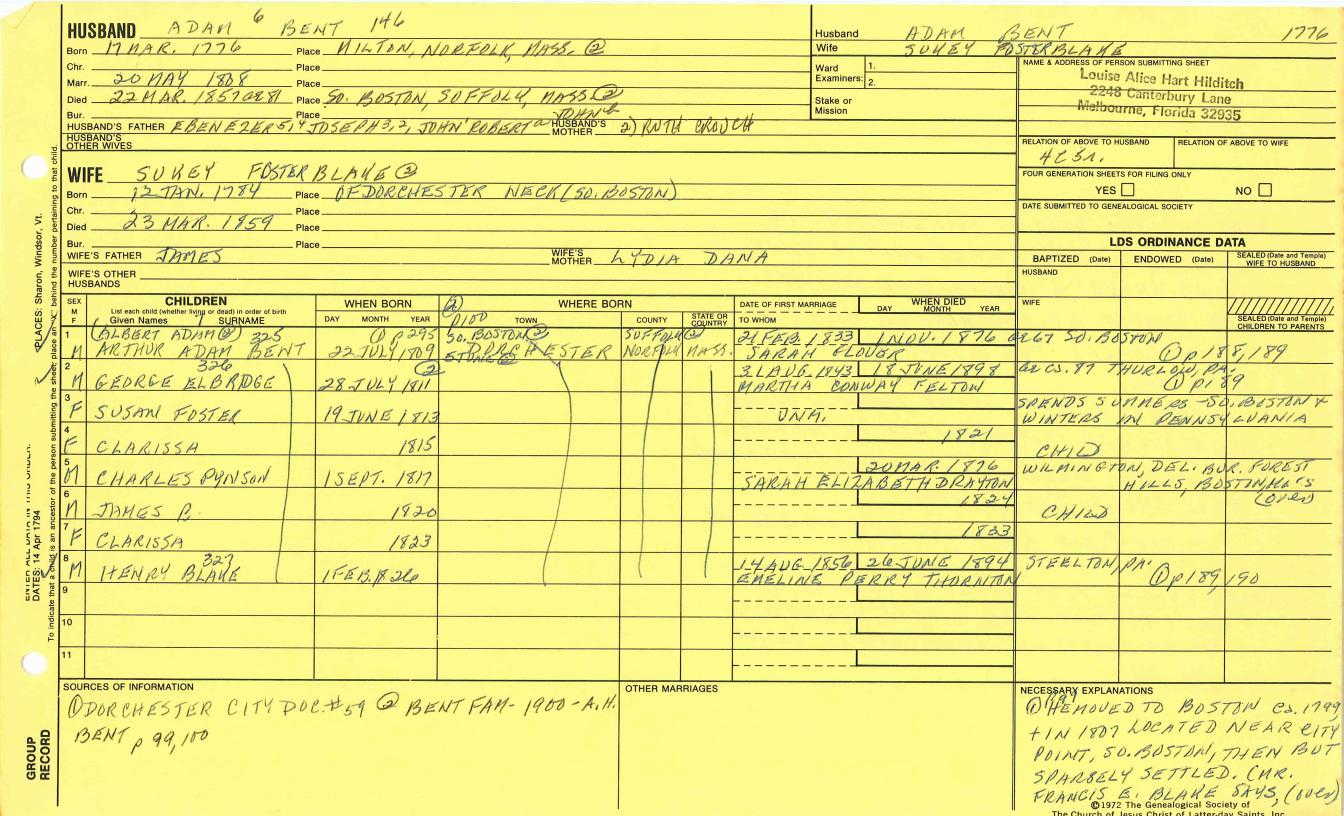 HUSBAND ADAM 6 BENT 146
Born 17 MAR. 1776 Place MILTON, NORFOLK, MASS. ②
Chr. Place
Marr. 20 MAY 1808 Place
Died 22 MAR. 1857 Place SO. BOSTON, SUFFOLK, MASS ②
Bur. Place
HUSBAND'S FATHER EBENEZER 5, 4 JOSEPH 3, 2, JOHN 1 ROBERT a JOHN b HUSBAND'S MOTHER 2) RUTH CROUCH
HUSBAND'S OTHER WIVES
WIFE SUKEY FOSTER BLAKE ②
Born 12 JAN. 1784 Place OF DORCHESTER NECK (SO. BOSTON)
Chr. Place
Died 23 MAR. 1859 Place
Bur. Place
WIFE'S FATHER JAMES WIFE'S MOTHER LYDIA DANA
WIFE'S OTHER HUSBANDS
Husband ADAM BENT 1776
Wife SUKEY FOSTER BLAKE
Ward Examiners: 1.
2.
Stake or Mission
NAME & ADDRESS OF PERSON SUBMITTING SHEET
Louise Alice Hart Hilditch
2248 Canterbury Lane
Melbourne, Florida 32935
RELATION OF ABOVE TO HUSBAND RELATION OF ABOVE TO WIFE
FOUR GENERATION SHEETS FOR FILING ONLY
YES NO
DATE SUBMITTED TO GENEALOGICAL SOCIETY
LDS ORDINANCE DATA
BAPTIZED (Date) ENDOWED (Date) SEALED (Date and Temple) WIFE TO HUSBAND
HUSBAND
WIFE
SEALED (Date and Temple) CHILDREN TO PARENTS
SEX M F CHILDREN WHEN BORN WHERE BORN DATE OF FIRST MARRIAGE WHEN DIED
List each child (whether living or dead) in order of birth
Given Names SURNAME DAY MONTH YEAR TOWN COUNTY STATE OR COUNTRY TO WHOM DAY MONTH YEAR
② p100
1 (ALBERT ADAM ②) 325 ① p 295 SO. BOSTON ② SUFFOLK ② 21 FEB. 1833 1 NOV. 1876 67 SO. BOSTON
M ARTHUR ADAM BENT 22 JULY 1809 DORCHESTER NORFOLK MASS. SARAH GLOVER ① p188, 189
2 326 ② 31 AUG. 1843 18 JUNE 1898 87 THURLOW, PA.
M GEORGE ELBRIDGE 28 JULY 1811 MARTHA CONWAY FELTON ① p189
3 SPENDS SUMMERS - SO. BOSTON &
F SUSAN FOSTER 19 JUNE 1813 UNM. WINTERS IN PENNSYLVANIA
4 1821
F CLARISSA 1815 CHILD
5 20 MAR. 1876 WILMINGTON, DEL. BUR. FOREST
M CHARLES PYNSON 1 SEPT. 1817 SARAH ELIZABETH DRAYTON HILLS, BOSTON,
6 1824 (over)
M JAMES 1820 CHILD
7 1823
F CLARISSA 1823
8 327 14 AUG. 1856 26 JUNE 1894 STEELTON, PA.
M HENRY BLAKE 1 FEB. 1826 EMELINE PERRY THORNTON ① p189, 190
9
10
11
SOURCES OF INFORMATION
① DORCHESTER CITY DOC. #59 ② BENT FAM - 1900 - A.H.
BENT p 99, 100
OTHER MARRIAGES
NECESSARY EXPLANATIONS
① p99 HE MOVED TO BOSTON Ca. 1799
+ IN 1807 LOCATED NEAR CITY
POINT, SO. BOSTON, THEN BUT
SPARSELY SETTLED. (MR.
FRANCIS E. BLAKE SAYS, (over)
©1972 The Genealogical Society of
The Church of Jesus Christ of Latter-day Saints, Inc.
PLACES: Sharon, Windsor, Vt.
DATES: 14 Apr 1794
ENTER ALL DATA IN THIS ORDER:
To indicate that a child is an ancestor of the person submitting the sheet, place an "X" behind the number pertaining to that child.
GROUP RECORD